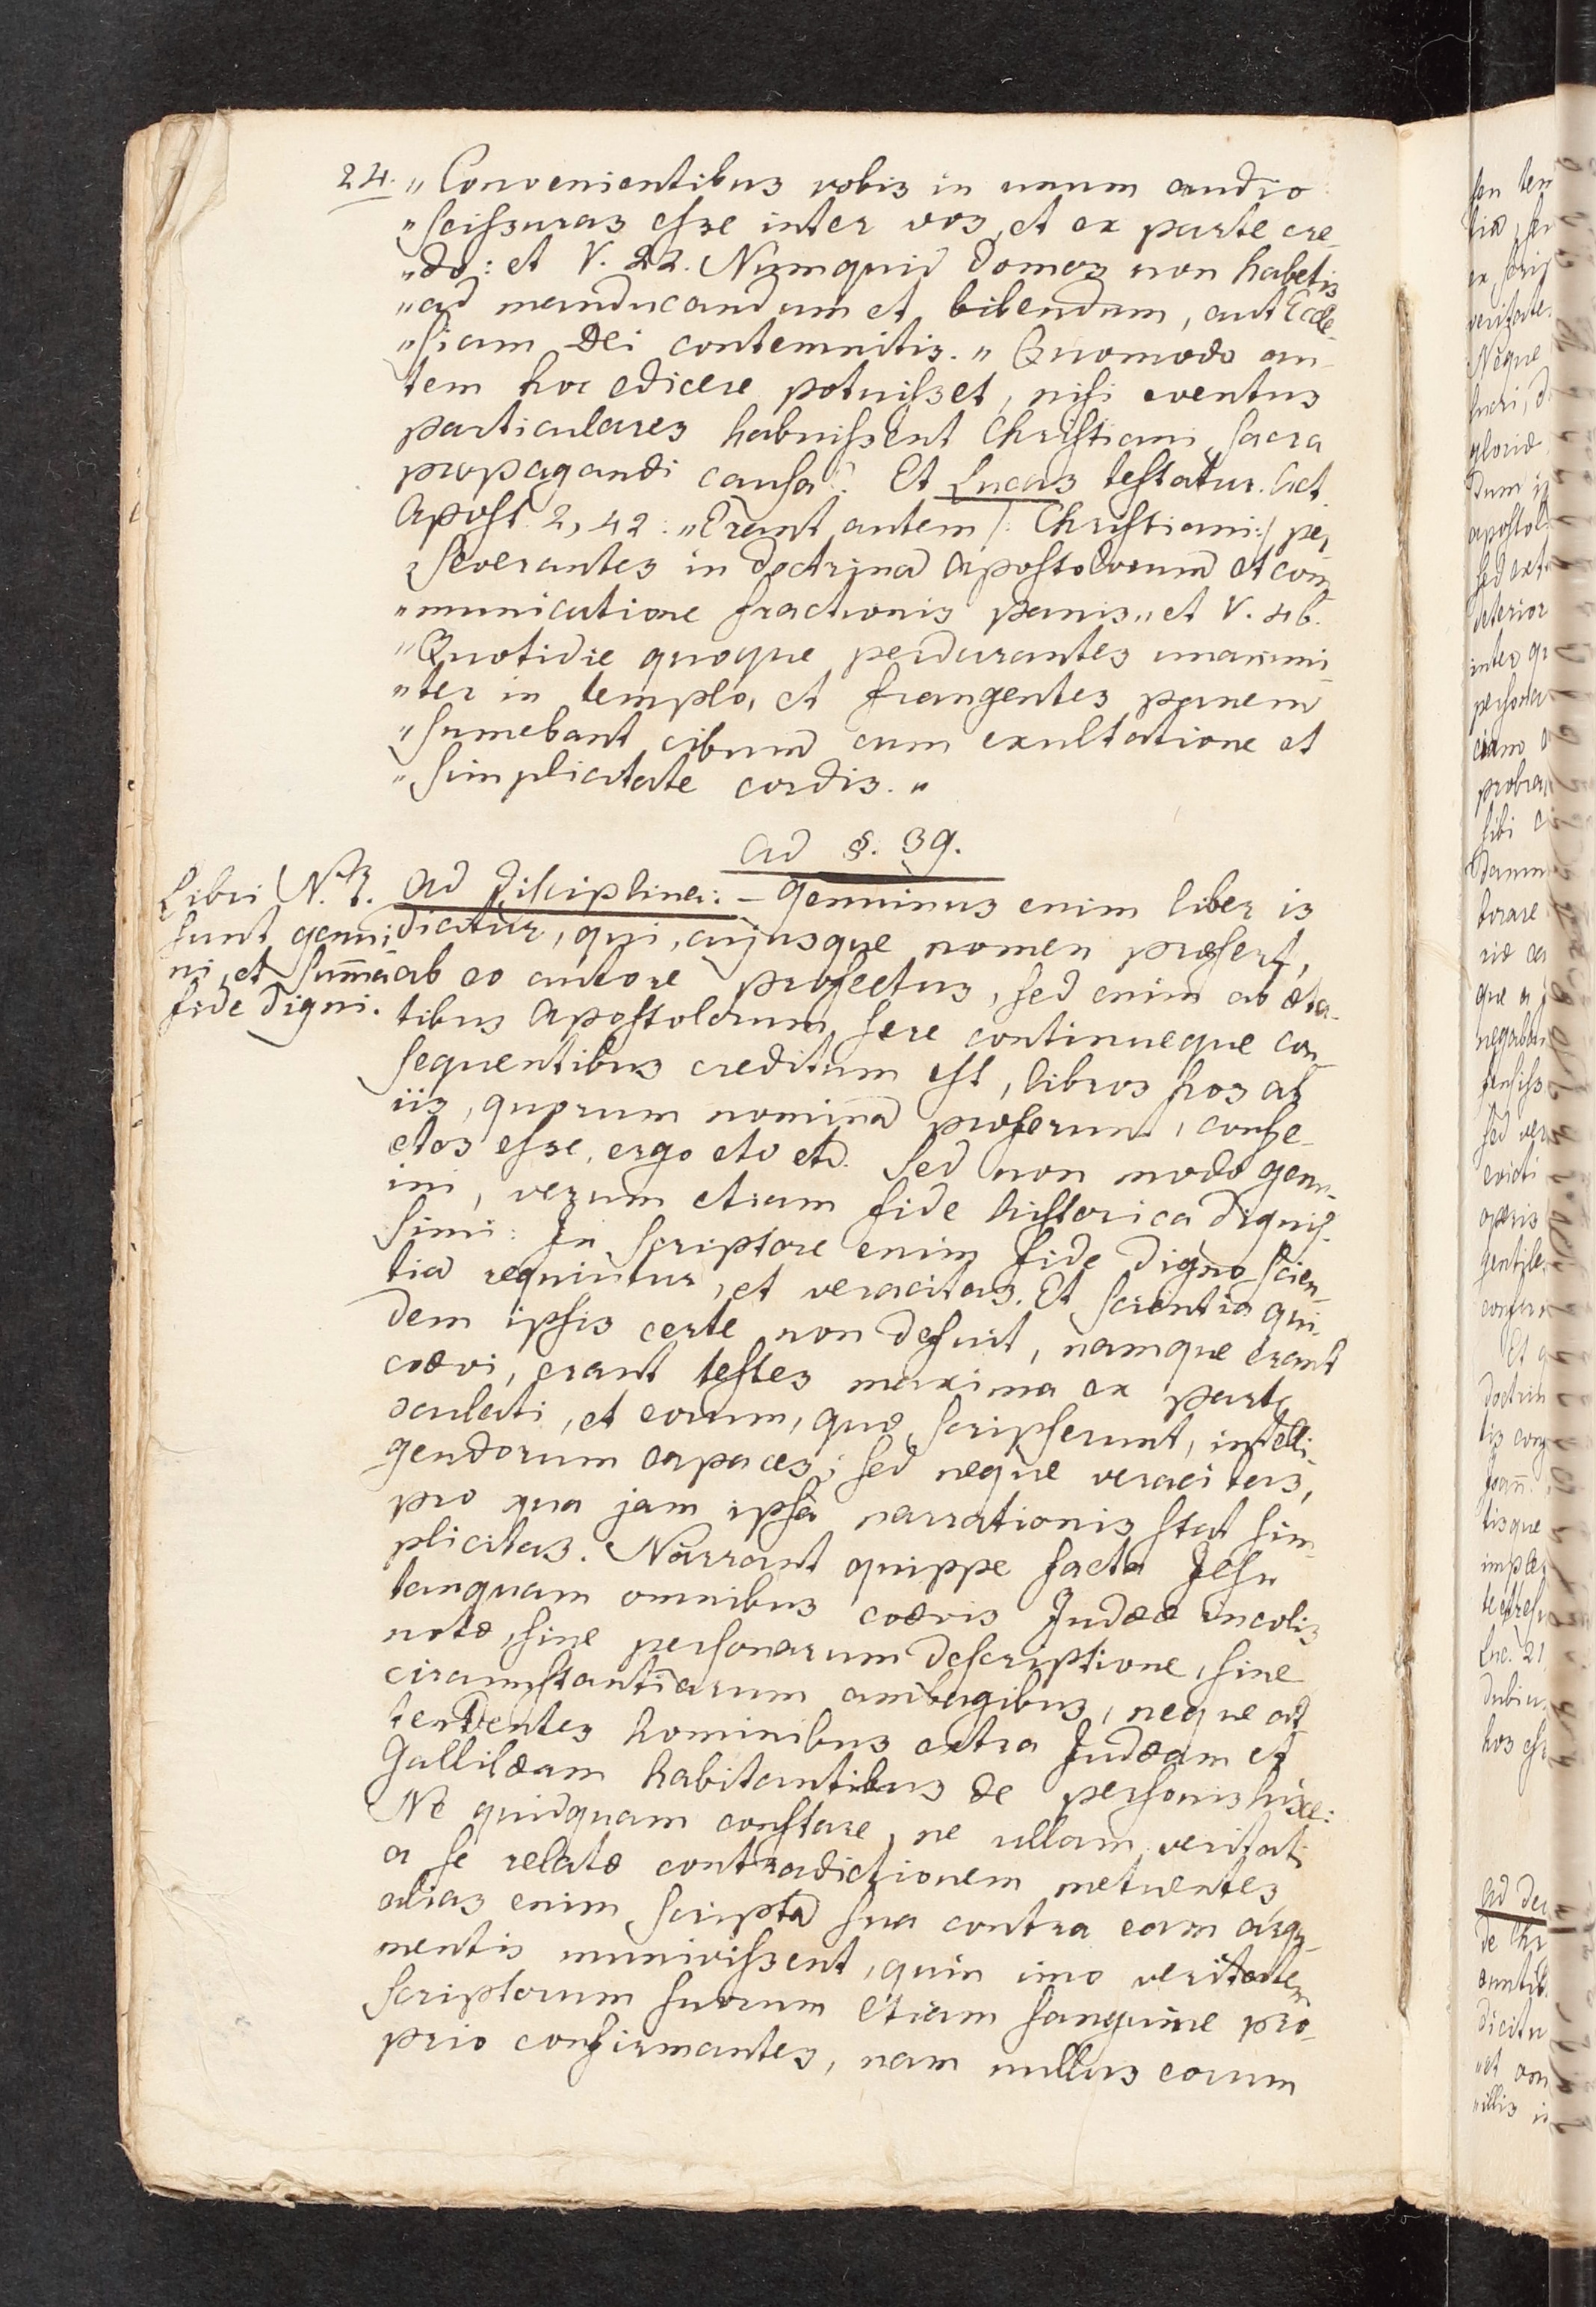 24. „Convenientibus vobis in unum audio
„scissuras esse inter vos, et ex parte cre-
„do: et V. 22. Numquid domos non habetis
„ad manducandum et bibendum, aut Eccle-
„siam Dei contemnitis.„ Quomodo au-
tem hoc edicere potuisset, nisi eventus
particulares habuissent Christiani sacra
propagandi causa? Et Lucas testatur. Act
Apost. 2, 42: „Erant autem /: Christiani:/ per
severantes in doctrina Apostolorum et com
„municatione fractionis panis„ et V. 46.
„Quotidie quoque perdurantes unanimi-
„ter in templo, et frangentes panem
„sumebant cibum cum exultatione et
„simplicitate cordis.„
ad §. 39.
Libri N. T.
sunt genui-
ni, et summa
fide digni.
Ad Discipline: – Genuinus enim liber is
dicitur, qui, cujusque nomen præfert,
ab eo autore profectus, sed enim ab æta-
tibus Apostolorum fere continueque con-
sequentibus creditum est, libros hos ab
iis, quorum nomina proferunt, confe-
ctos esse, ergo etc etc. Sed non modo genu-
ini, verum etiam fide historica dignis-
simi: In scriptore enim fide digno scien-
tia requiritur, et veracitas. Et scientia qui-
dem ipsis certe non defuit, namque erant
coævi, erant testes maxima ex parte
oculati, et eorum, quæ scripserunt, intelli-
gendorum capaces; sed neque veracitas,
pro qua jam ipsa narrationis stat sim-
plicitas. Narrant quippe facta Jesu
tanquam omnibus coævis Judææ incolis
nota, sine personarum descriptione, sine
circumstantiarum ambagibus, neque at-
tendentes hominibus extra Judæam et
Gallilæam habitantibus de personis hisce
Ne quidquam constare, ne ullam veritati
a se relatæ contradictionem metuentes
alias enim scripta sua contra eam argu-
mentis munivissent, quin imo veritatem
scriptorum suorum etiam sanguine pro-
prio confirmantes, nam nullus eorum